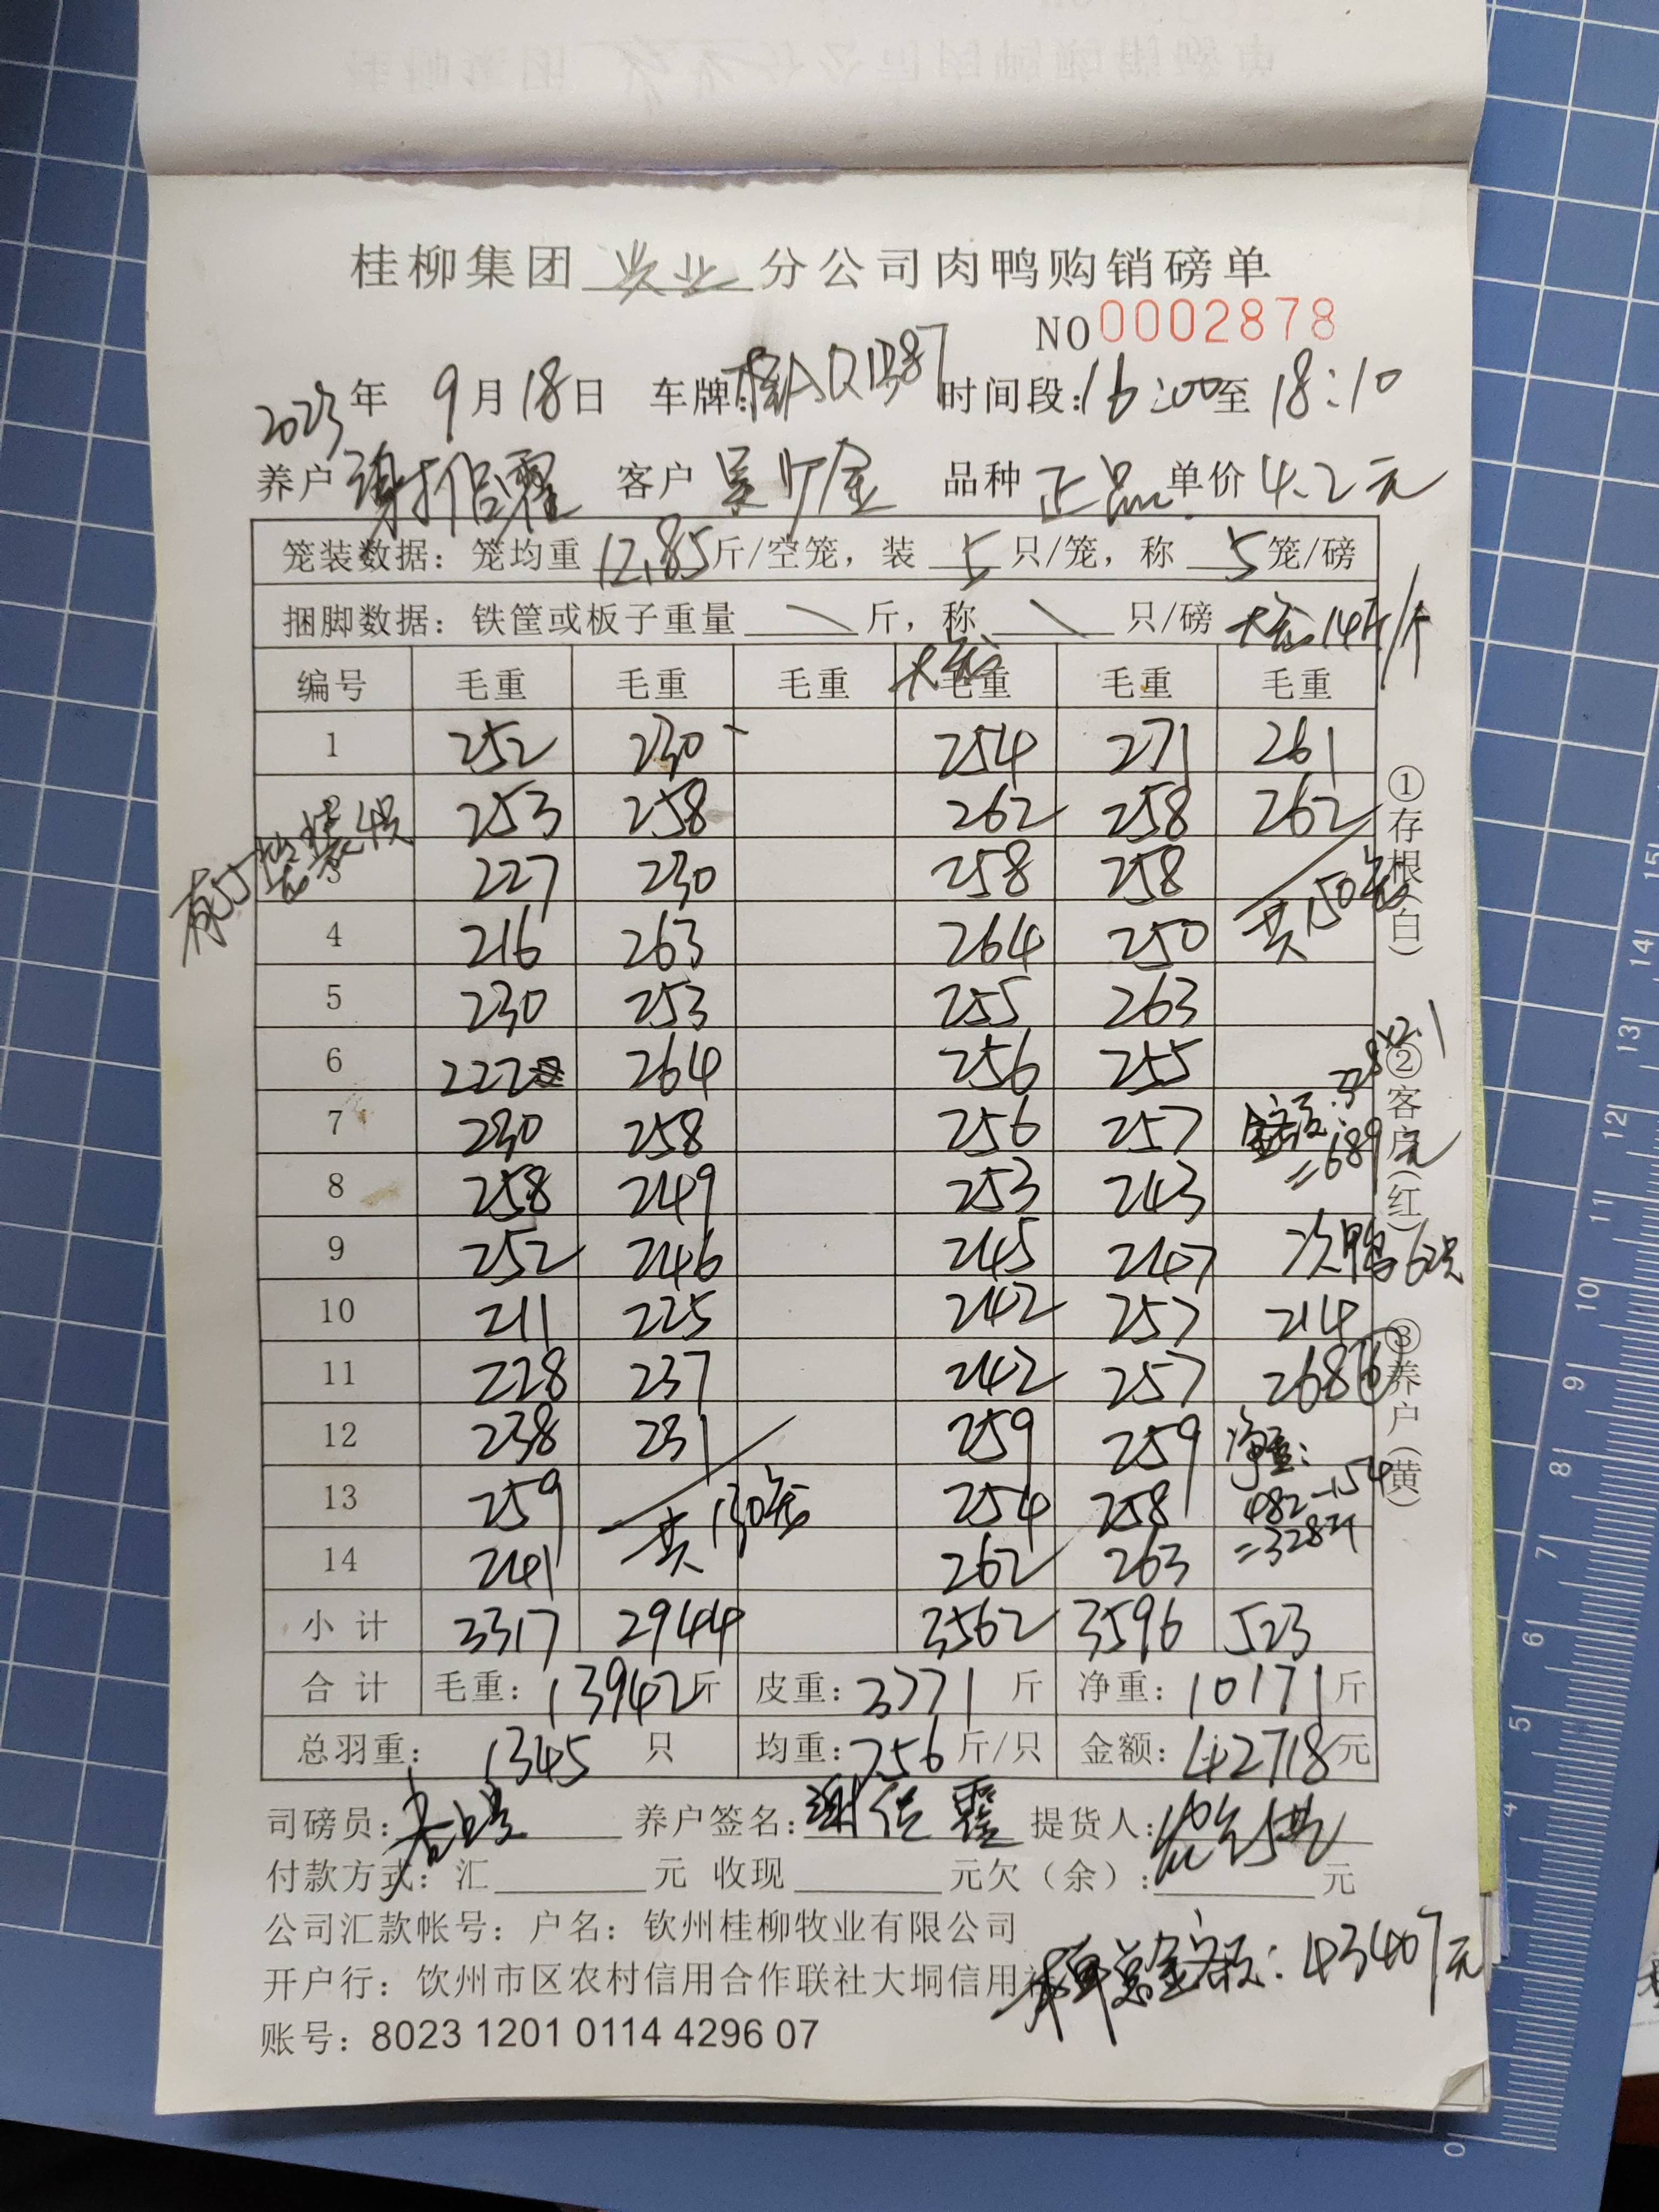 桂柳集团兴业分公司肉鸭购销磅单
NO 0002878
2023年 9月18日 车牌:桂AQ1387 时间段:16:00至18:10
养户 客户 吴 金 品种 正品 单价 4.2元
笼装数据：笼均重12.85斤/空笼，装 5 只/笼，称 5 笼/磅
捆脚数据：铁筐或板子重量 \ 斤，称 \ 只/磅 大笼14斤/个
大笼
编号 毛重 毛重 毛重 毛重 毛重 毛重
1 252 230 254 271 261
253 258 262 258 262
有5笼装4只
3 227 230 258 258
4 216 263 264 250 共150笼
5 230 253 255 263
6 222 264 256 255
7 230 258 256 257 金额:328×2.1
=689元
8 258 249 253 243
9 252 246 245 247 次鸭62只
10 211 225 242 257 214
11 228 237 242 257 268
12 238 231 259 259 净重:
13 259 共130笼 254 258 482-154
14 241 262 263 =328斤
小计 3317 2944 3562 3596 523
合计 毛重：13942斤 皮重：3771斤 净重：10171斤
总羽重：1345 只 均重：756斤/只 金额：42718元
司磅员： 养户签名： 提货人：
付款方式：汇 元 收现 元欠（余）： 元
公司汇款帐号：户名：钦州桂柳牧业有限公司
开户行：饮州市区农村信用合作联社大垌信用社
本单总金额：43407元
账号：8023 1201 0114 4296 07
①存根（白） ②客户（红） ③养户（黄）
15
14
13
12
11
10
9
8
7
6
5
4
0